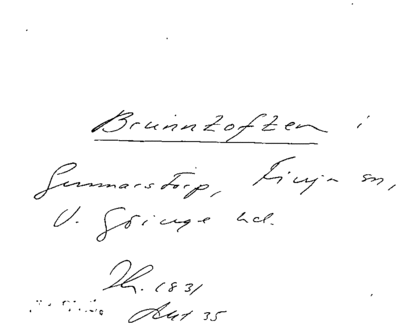 Brunnzoften i
Gunnarstorp, Finja sn,
V. Göinge hd.
Th. 1831
Akt 35